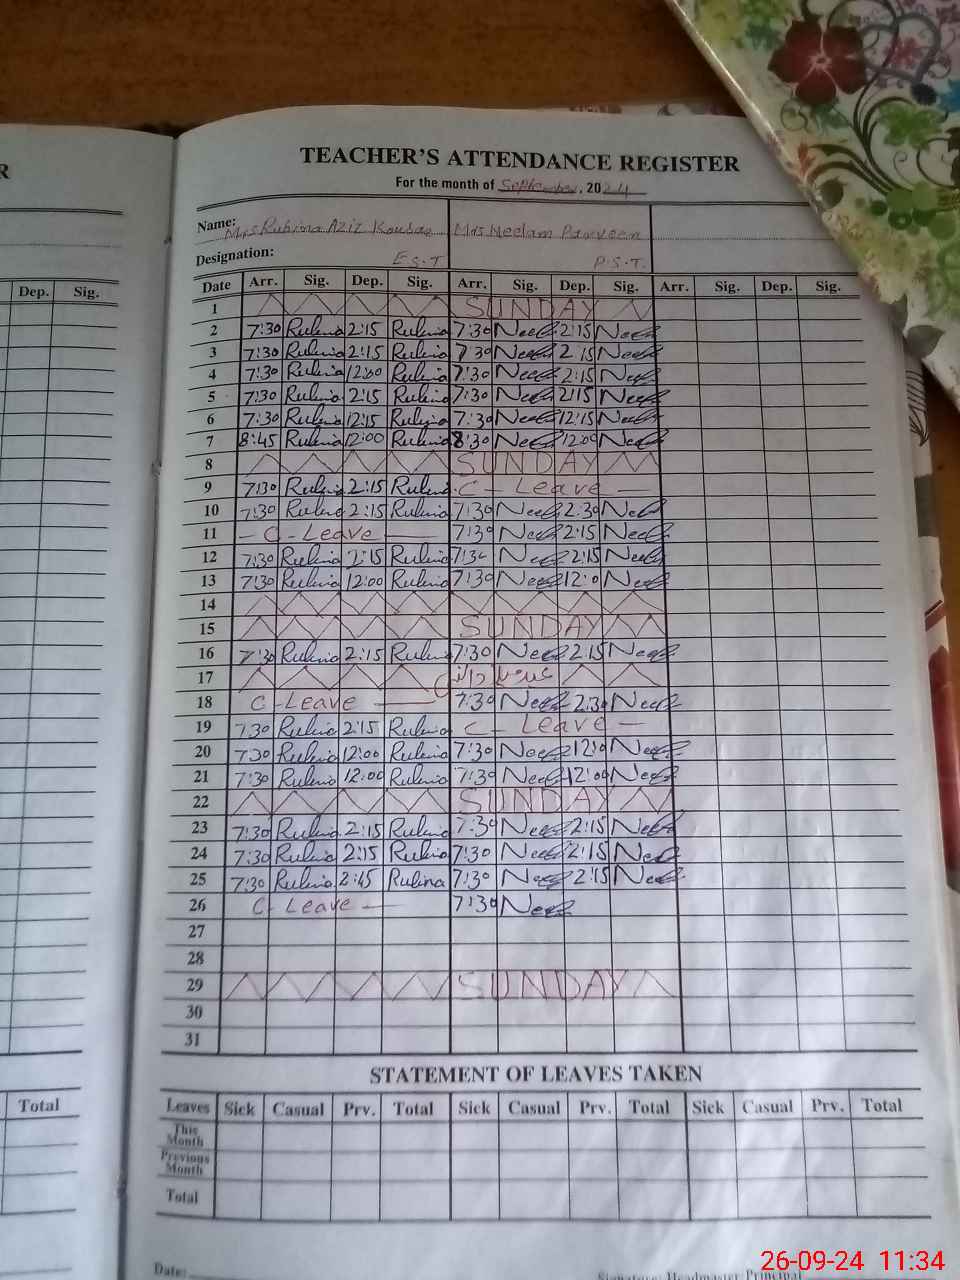 R
TEACHER'S ATTENDANCE REGISTER
For the month of September, 2024
Name: Mrs Rubina Aziz Kousar Mrs Neelam Parveen
Designation: E.S.T P.S.T.
Dep. Sig. Date Arr. Sig. Dep. Sig. Arr. Sig. Dep. Sig. Arr. Sig. Dep. Sig.
1 SUNDAY
2 7:30 Rubina 2:15 Rubina 7:30 Neel 2:15 Neel
3 7:30 Rubina 2:15 Rubina 7 30 Neel 2 15 Neel
4 7:30 Rubina 12:00 Rubina 7:30 Neel 2:15 Neel
5 7:30 Rubina 2:15 Rubina 7:30 Neel 2:15 Neel
6 7:30 Rubina 12:15 Rubina 7:30 Neel 12:15 Neel
7 8:45 Rubina 12:00 Rubina 8:30 Neel 12:00 Neel
8 SUNDAY
9 7:30 Rubina 2:15 Rubina C - Leave -
10 7:30 Rubina 2:15 Rubina 7:30 Neel 2:30 Neel
11 - C - Leave - 7:30 Neel 2:15 Neel
12 7:30 Rubina 2:15 Rubina 7:30 Neel 2:15 Neel
13 7:30 Rubina 12:00 Rubina 7:30 Neel 12:0 Neel
14
15 SUNDAY
16 7:30 Rubina 2:15 Rubina 7:30 Neel 2:15 Neel
17
18 C - Leave - 7:30 Neel 2:30 Neel
19 7:30 Rubina 2:15 Rubina C - Leave -
20 7:30 Rubina 12:00 Rubina 7:30 Neel 12:0 Neel
21 7:30 Rubina 12:00 Rubina 7:30 Neel 12:00 Neel
22 SUNDAY
23 7:30 Rubina 2:15 Rubina 7:30 Neel 2:15 Neel
24 7:30 Rubina 2:15 Rubina 7:30 Neel 2:15 Neel
25 7:30 Rubina 2:45 Rubina 7:30 Neel 2:15 Neel
26 C - Leave - 7:30 Neel
27
28
29 SUNDAY
30
31
STATEMENT OF LEAVES TAKEN
Total Leaves Sick Casual Prv. Total Sick Casual Prv. Total Sick Casual Prv. Total
This Month
Previous Month
Total
Date: Signature: Headmaster Principal
26-09-24 11:34